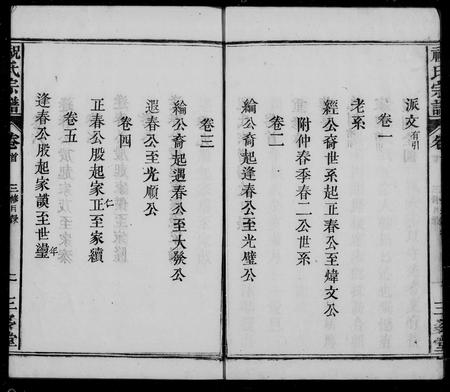 祝氏宗譜
卷
三峯堂
派文有引
卷一
老系
經公裔世系起正春公至煒文公
附仲春季春二公世系
卷二
綸公裔起逢春公至光璧公
卷三
綸公裔起遇春公至大發公
遐春公至光順公
卷四
正春公股起家正仁至家續
卷五
逢春公股起家謨至世璗年
祝氏宗譜
卷首
三修目錄
上
三峯堂